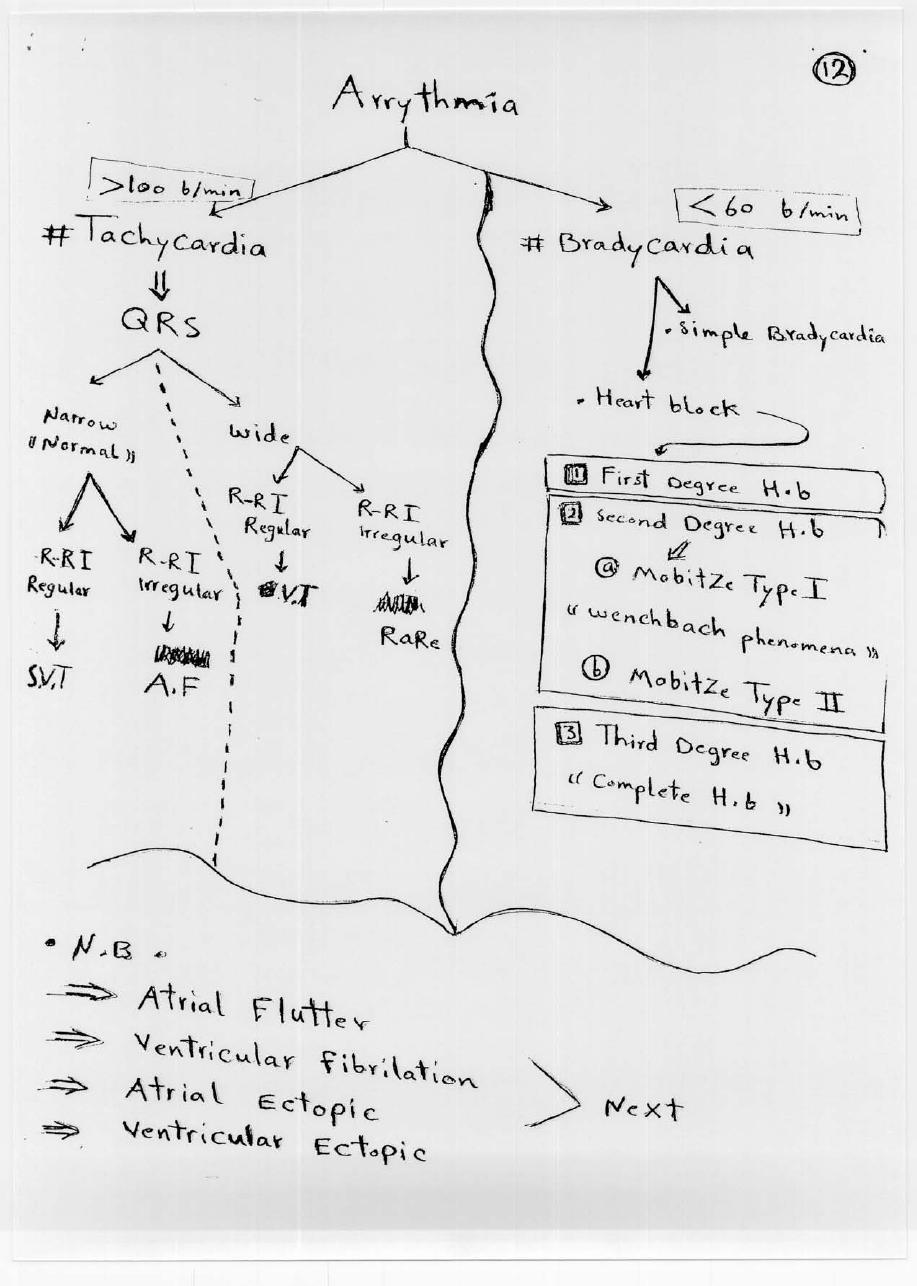 12
Arrythmia
>100 b/min
# Tachycardia
QRS
Narrow
"Normal"
R-RI
Regular
S.V.T
R-RI
Irregular
A.F
wide
R-RI
Regular
V.T
R-RI
irregular
RaRe
<60 b/min
# Bradycardia
• Simple Bradycardia
• Heart block
1 First Degree H.b
2 Second Degree H.b
a MobitZe Type I
"wenchbach phenomena"
b MobitZe Type II
3 Third Degree H.b
"Complete H.b"
• N.B •
⇒ Atrial Flutter
⇒ Ventricular fibrilation
⇒ Atrial Ectopic
⇒ Ventricular Ectopic
Next